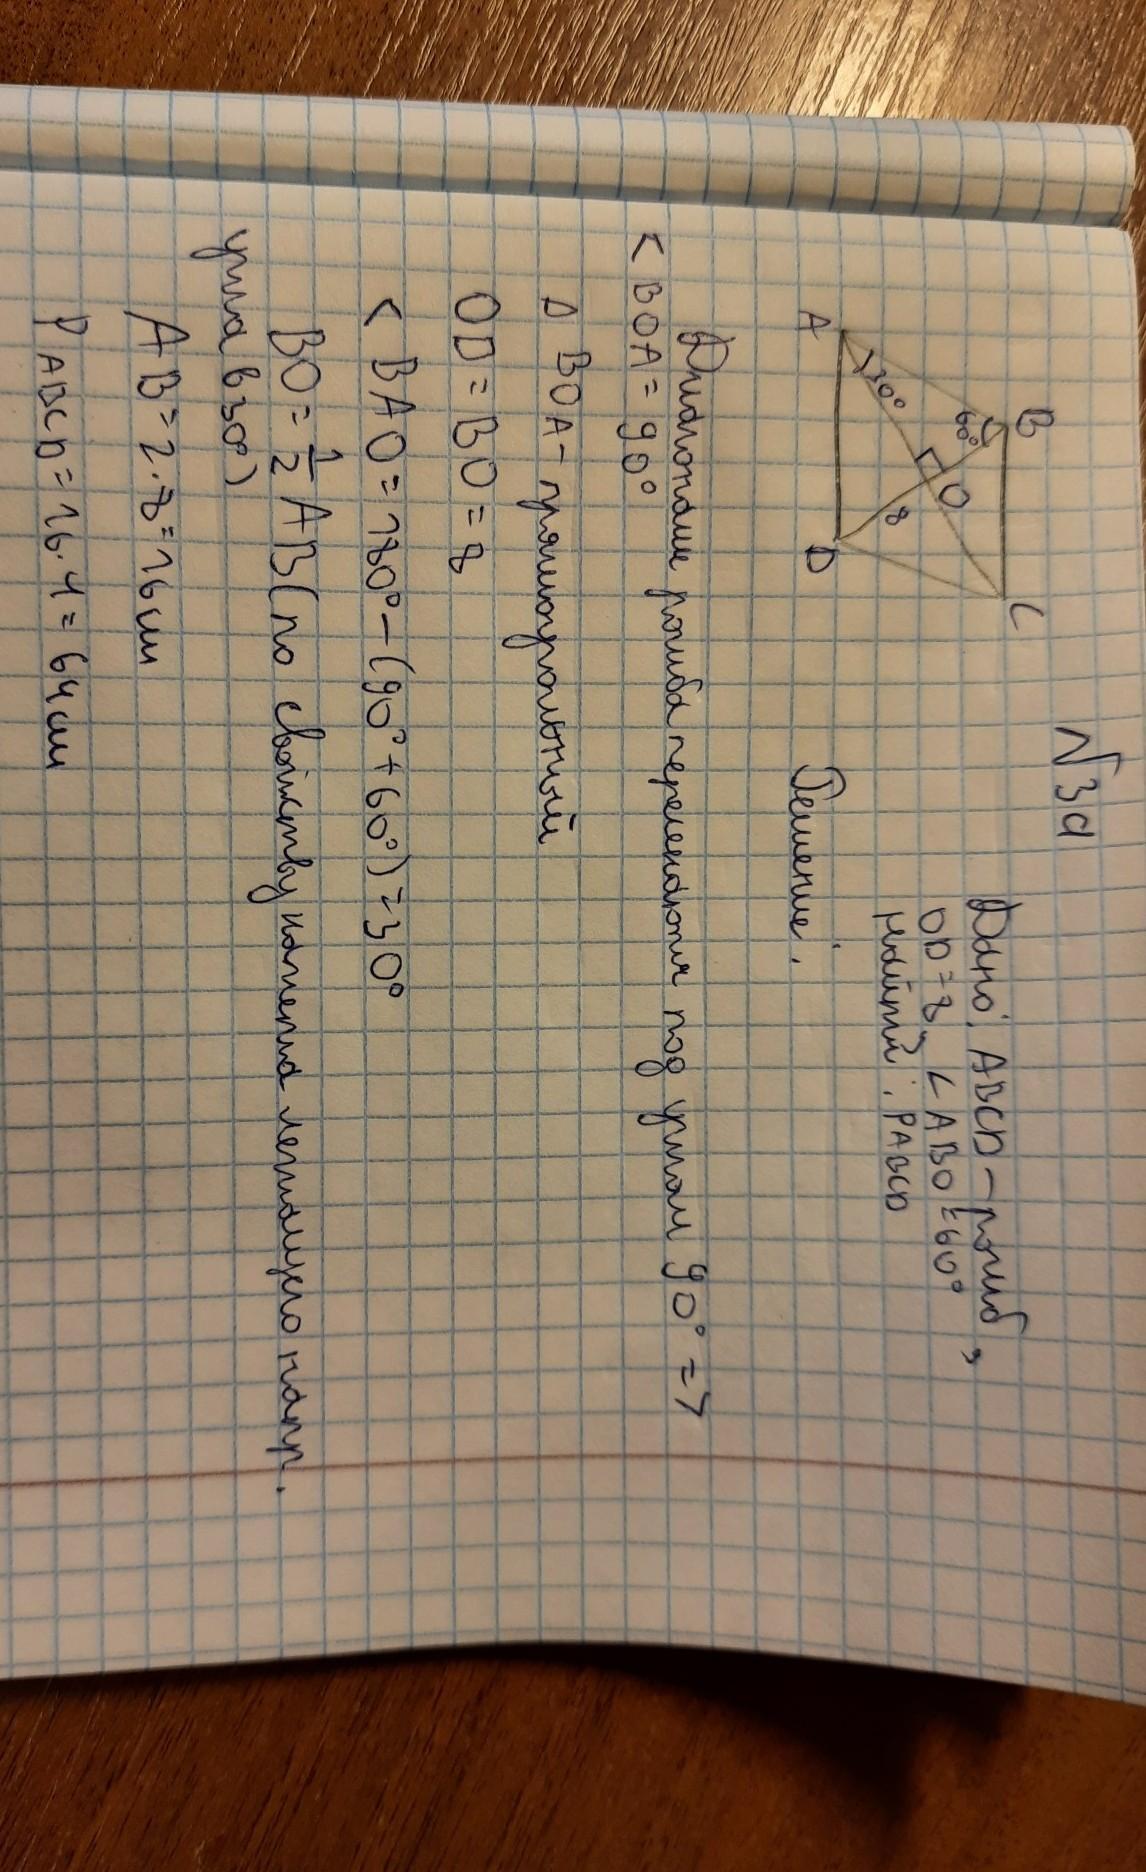 √3a
Дано: ABCD - ромб,
OD = 8, < ABO = 60°
Найти: PABCD
B
C
60°
O
30°
8
A
D
Решение:
Диагонали ромба пересекаются под углом 90° =>
< BOA = 90°
Δ BOA - прямоугольный
OD = BO = 8
< BAO = 180° - (90° + 60°) = 30°
BO = 1/2 AB (по свойству катета лежащего напр.
угла в 30°)
AB = 2 · 8 = 16 см
PABCD = 16 · 4 = 64 см